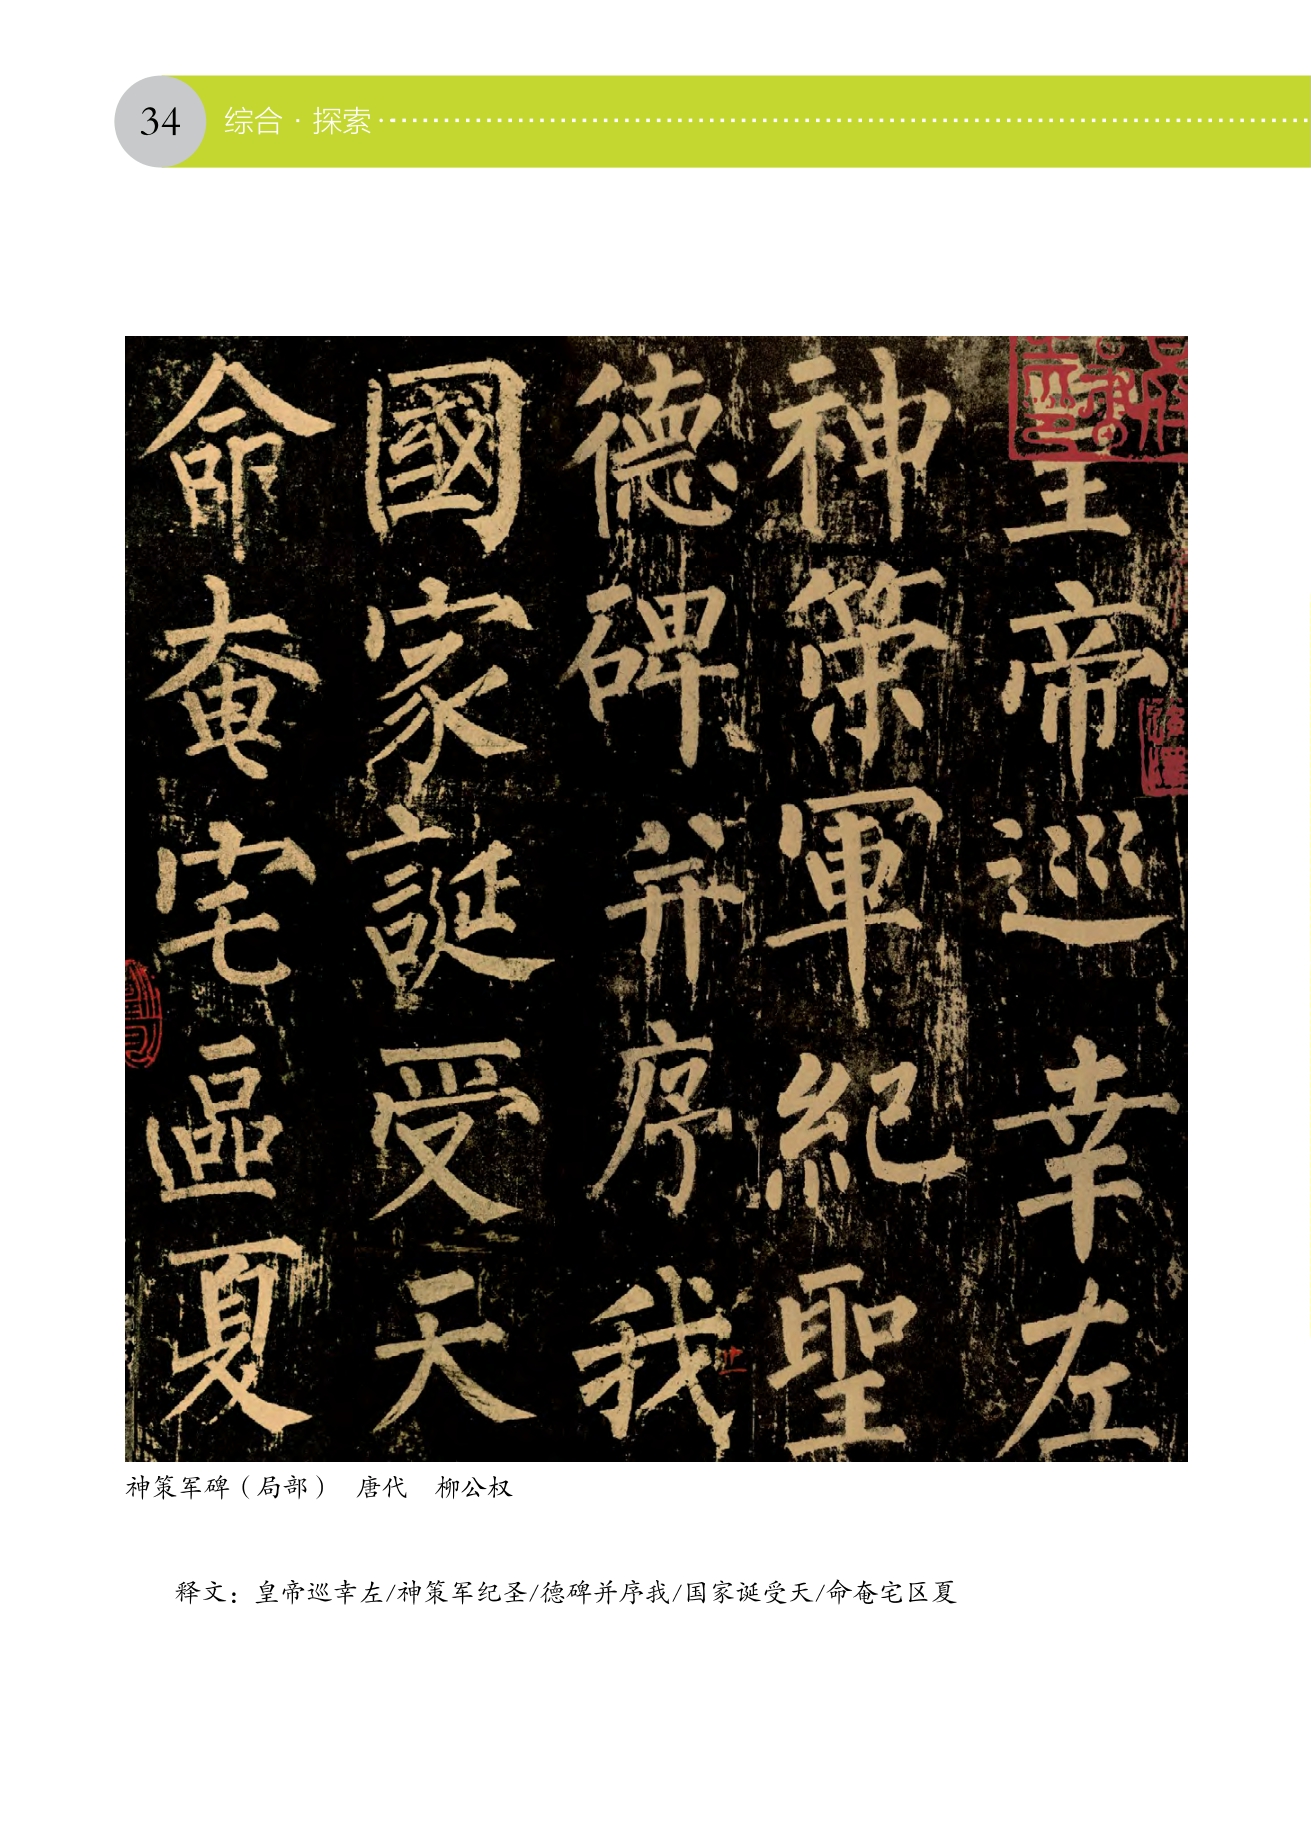 34
综合·探索
皇帝巡幸左
神策軍紀聖
德碑并序我
國家誕受天
命奄宅區夏
神策军碑（局部） 唐代 柳公权
释文：皇帝巡幸左/神策军纪圣/德碑并序我/国家诞受天/命奄宅区夏